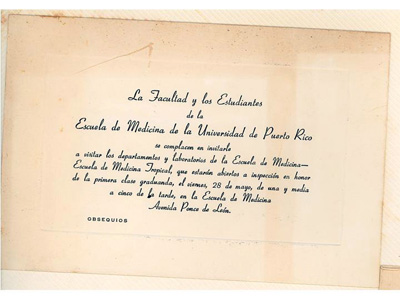 La Facultad y los Estudiantes
de la
Escuela de Medicina de la Universidad de Puerto Rico
se complacen en invitarle
a visitar los departamentos y laboratorios de la Escuela de Medicina—
Escuela de Medicina Tropical, que estarán abiertos a inspección en honor
de la primera clase graduanda, el viernes, 28 de mayo, de una y media
a cinco de la tarde, en la Escuela de Medicina
Avenida Ponce de León.
OBSEQUIOS